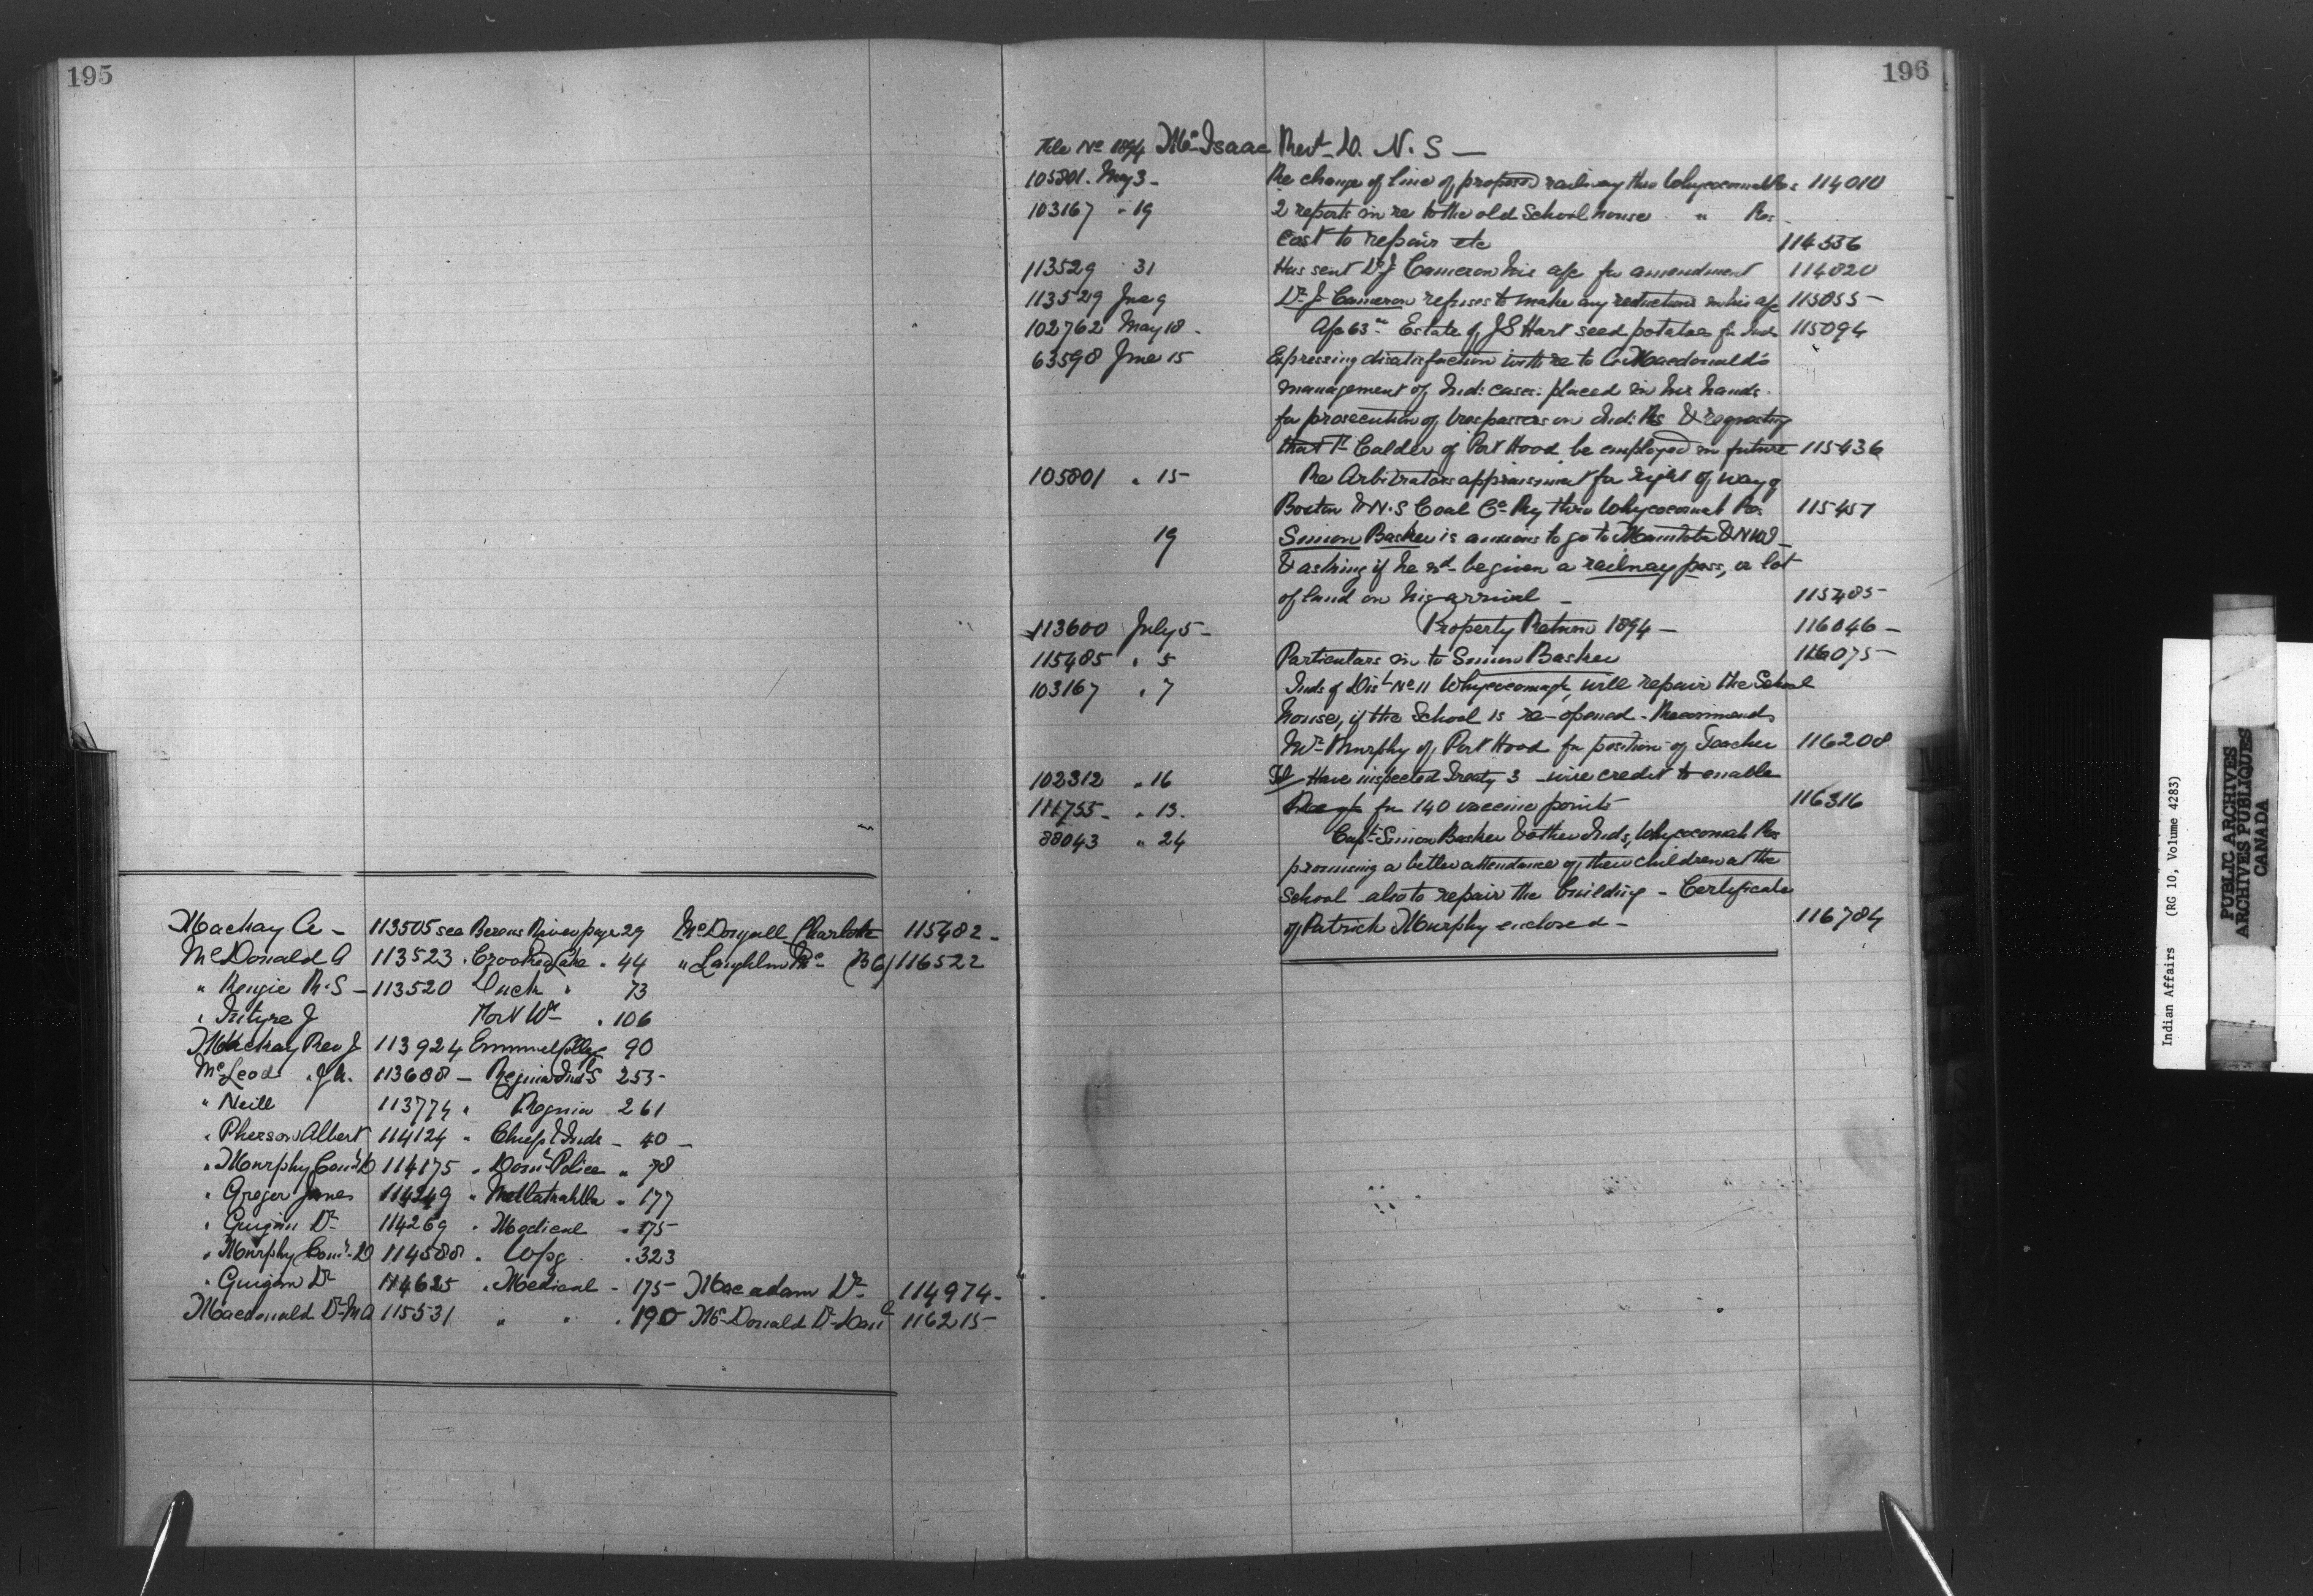 195
Mackay A - 113505 see Berens River page 29 McDougall Charlotte 115482 -
McDonald A 113523 " Crooked Lake " 44 " Laughlin (BC) 116522
" Kenzie R.S - 113520 Duck " 73
" Intyre J Fort Wm " 106
Mackay Rev J 113924 Emmanuel College 90
McLeod J 113688 - Regina Ind S 253 -
" Neill 113774 " Regina 261
" Pherson Albert 114124 " Chiefs & Inds - 40 -
" Murphy Comr D 114175 " Domn Police " 78
" Gregor James 114249 " Metlakahtla " 177
" Guigan Dr 114269 " Medical " 175
" Murphy Comr D 114588 " Wpg " 323
" Guigan Dr 114625 " Medical - 175 Macadam Dr 114974 -
Macdonald Dr MA 115531 " " " 190 McDonald Dr 116215 -
196
File No 1894 McIsaac Revd D. N.S -
105801. May 3 - Re change of line of proposed railway thro Whycocomah Res 114010
103167 " 19 2 reports in re to the old School house " Res
cost to repair etc 114536
113529 31 Has sent Dr J Cameron his a/c for amendment 114820
113529 June 9 Dr J Cameron refuses to make any reductions in his a/c 115055 -
102762 May 18 - A/c 63 Estate of J S Hart seed potatoes for Inds 115094
63598 June 15 Expressing disatisfaction with re to Macdonald's
management of Ind: cases: placed in his hands
for prosecution of trespassers on Ind: Rs & requesting
that Calder of Port Hood be employed in future 115436
105801 " 15 Re Arbitrators appraisement for right of way of
Boston & N.S Coal Co Ry thro Whycocomah Res 115457
19 Simon Basker is anxious to go to Manitoba & NW -
& asking if he wd be given a railway pass, or lot
of land on his arrival - 115485 -
113600 July 5 - Property Return 1894 - 116046 -
115485 " 5 Particulars in to Simon Basker 116075 -
103167 " 7 Inds of Dist No 11 Whycocomagh, will repair the School
house, if the School is re-opened - Recommends
Mr Murphy of Port Hood for position of Teacher 116208
102312 " 16 Have inspected Treaty 3 - wire credit to enable
111755 - " 13. for 140 vaccine points 116316
88043 " 24 Capt Simon Basker & other Inds, Whycocomah Res
promising a better attendance of their children at the
School - also to repair the building - Certificate
of Patrick Murphy enclosed - 116784
Indian Affairs (RG 10, Volume 4283)
PUBLIC ARCHIVES
ARCHIVES PUBLIQUES
CANADA